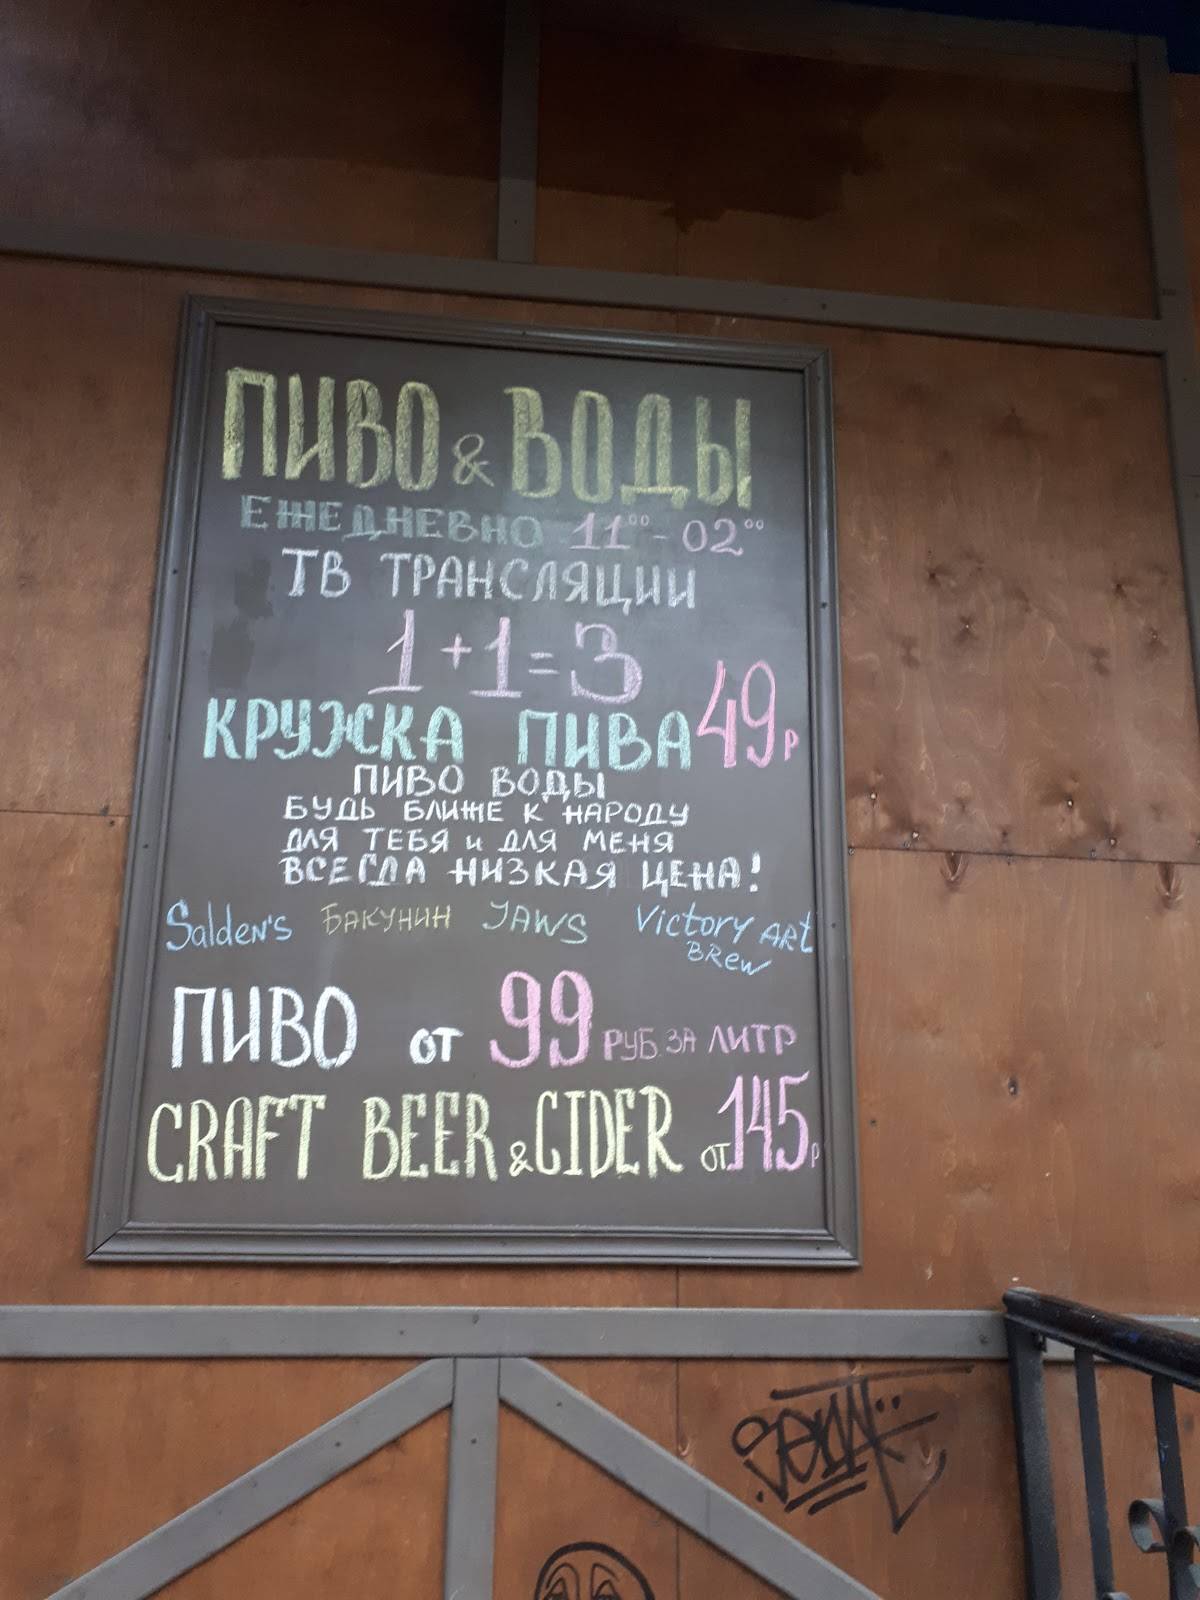 ПИВО & ВОДЫ
ЕЖЕДНЕВНО 11⁰⁰ - 02⁰⁰
ТВ ТРАНСЛЯЦИИ
1 + 1 = 3
КРУЖКА ПИВА 49р
ПИВО ВОДЫ
БУДЬ БЛИЖЕ К НАРОДУ
ДЛЯ ТЕБЯ и ДЛЯ МЕНЯ
ВСЕГДА НИЗКАЯ ЦЕНА!
Salden's БАКУНИН JAWS Victory ARt
BRew
ПИВО от 99 РУБ. ЗА ЛИТР
CRAFT BEER & CIDER от 145р